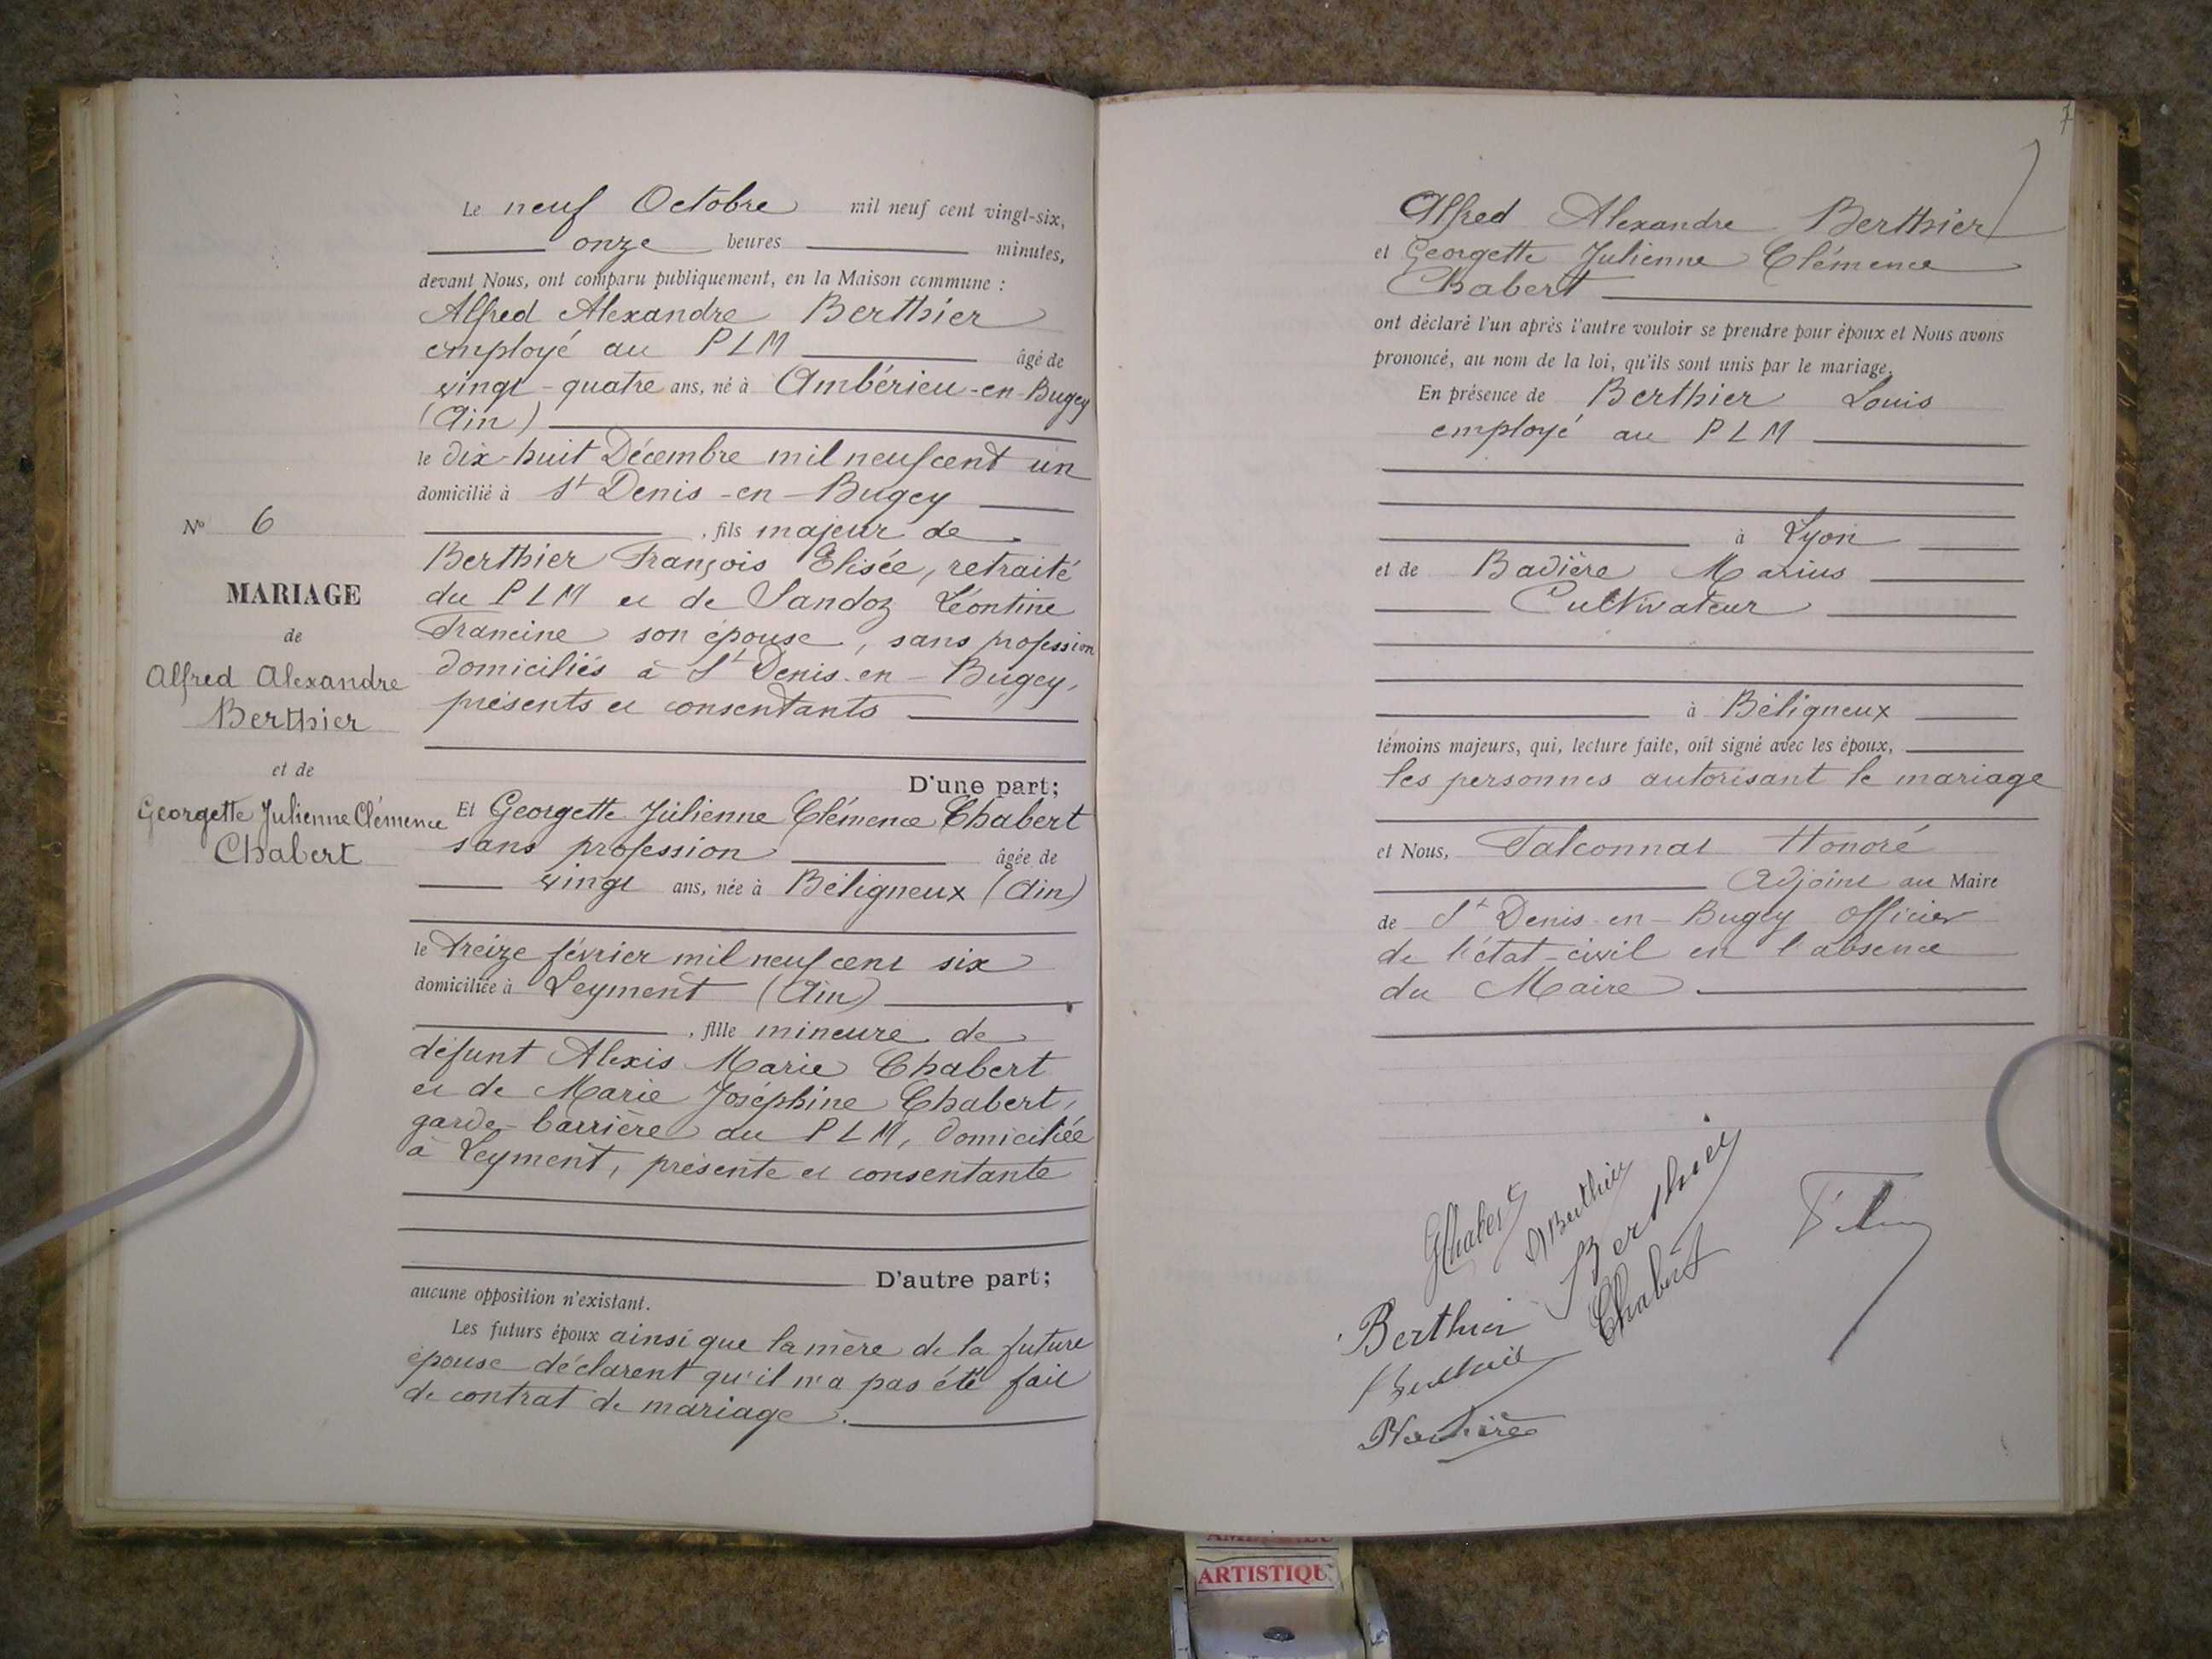 Le neuf Octobre mil neuf cent vingt-six,
onze heures minutes,
devant Nous, ont comparu publiquement, en la Maison commune :
Alfred Alexandre Berthier
employé au PLM âgé de
vingt-quatre ans, né à Ambérieu-en-Bugey
(Ain)
le dix-huit Décembre mil neuf cent un
domicilié à St Denis-en-Bugey
, fils majeur de
Berthier François Elisée, retraité
du PLM et de Sandoz Léontine
Francine son épouse, sans profession
domiciliés à St Denis-en-Bugey,
présents et consentants
D'une part;
Et Georgette Julienne Clémence Chabert
sans profession âgée de
vingt ans, née à Béligneux (Ain)
le treize février mil neuf cent six
domiciliée à Leyment (Ain)
, fille mineure de
défunt Alexis Marie Chabert
et de Marie Joséphine Chabert,
garde-barrière au PLM, domiciliée
à Leyment, présente et consentante
D'autre part;
aucune opposition n'existant.
Les futurs époux ainsi que la mère de la future
épouse déclarent qu'il n'a pas été fait
de contrat de mariage.
No 6
MARIAGE
de
Alfred Alexandre
Berthier
et de
Georgette Julienne Clémence
Chabert
7
Alfred Alexandre Berthier
et Georgette Julienne Clémence
Chabert
ont déclaré l'un après l'autre vouloir se prendre pour époux et Nous avons
prononcé, au nom de la loi, qu'ils sont unis par le mariage.
En présence de Berthier Louis
employé au PLM
à Lyon
et de Badière Marius
Cultivateur
à Béligneux
témoins majeurs, qui, lecture faite, ont signé avec les époux,
les personnes autorisant le mariage
et Nous, Falconnat Honoré
Adjoint au Maire
de St Denis-en-Bugey officier
de l'état-civil en l'absence
du Maire
GChabert
A Berthier
Berthier
Chabert
Berthier
Berthier
ARTISTIQU